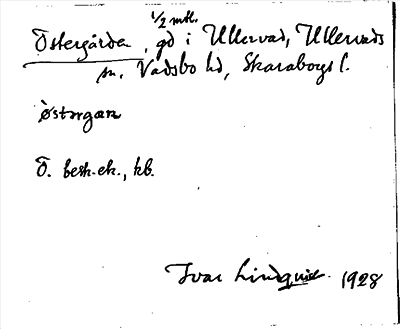 1/2 mtl.
Östergården, gd i Ullervad, Ullervads
sn. Vadsbo hd, Skaraborgs l.
östərgarn
Ö. besk.ek., kb.
Ivar Lindquist 1928